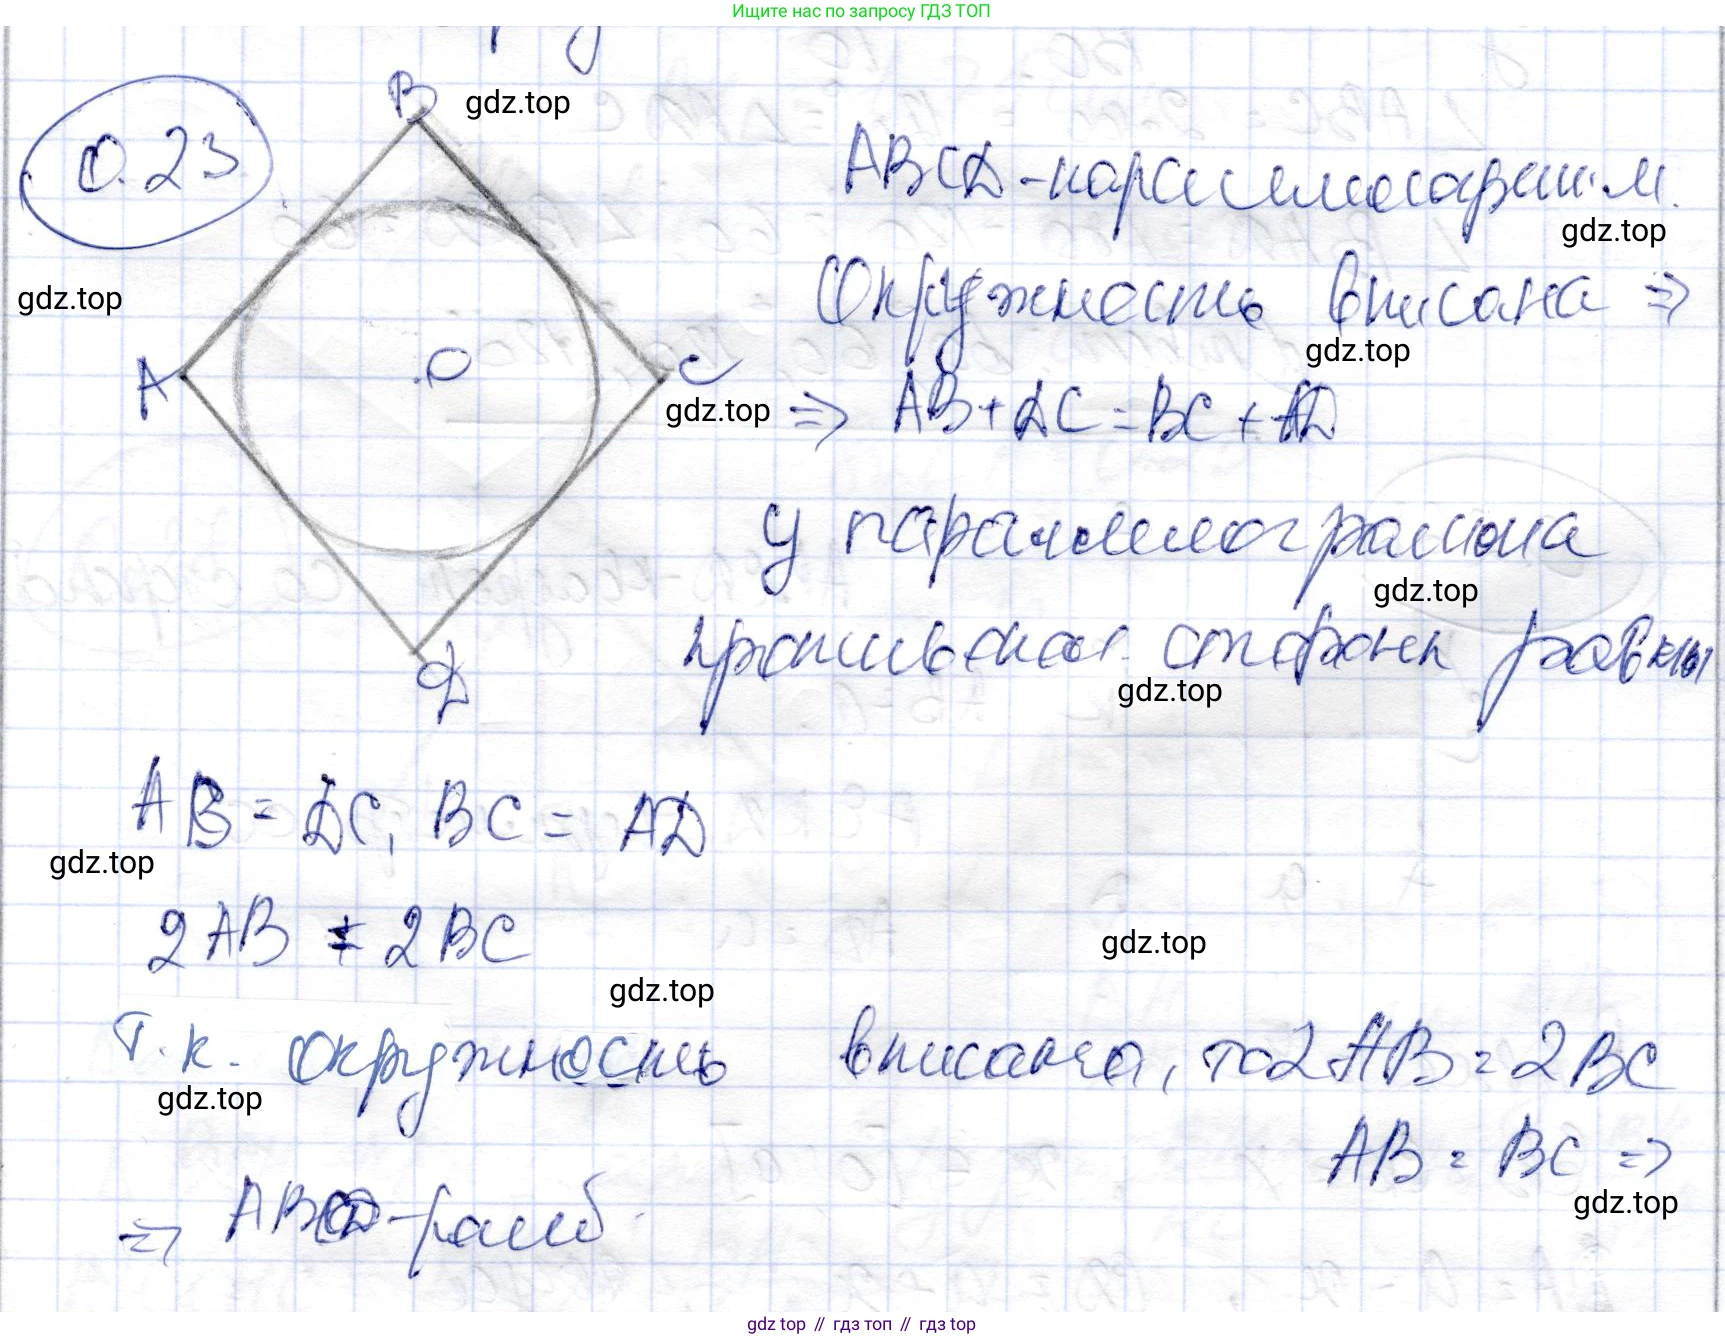 Ищите нас по запросу ГДЗ ТОП
0.23
B
gdz.top
ABCD - параллелограмм.
gdz.top
gdz.top
Окружность вписана ⇒
gdz.top
A
O
C
gdz.top
⇒ AB + DC = BC + AD
У параллелограмма
gdz.top
стороны равны
gdz.top
D
AB = DC, BC = AD
gdz.top
2AB = 2BC
gdz.top
gdz.top
Т.к. окружность вписана, то 2AB = 2BC
gdz.top
AB = BC ⇒
gdz.top
⇒ ABCD - ромб.
gdz.top // гдз топ // гдз top